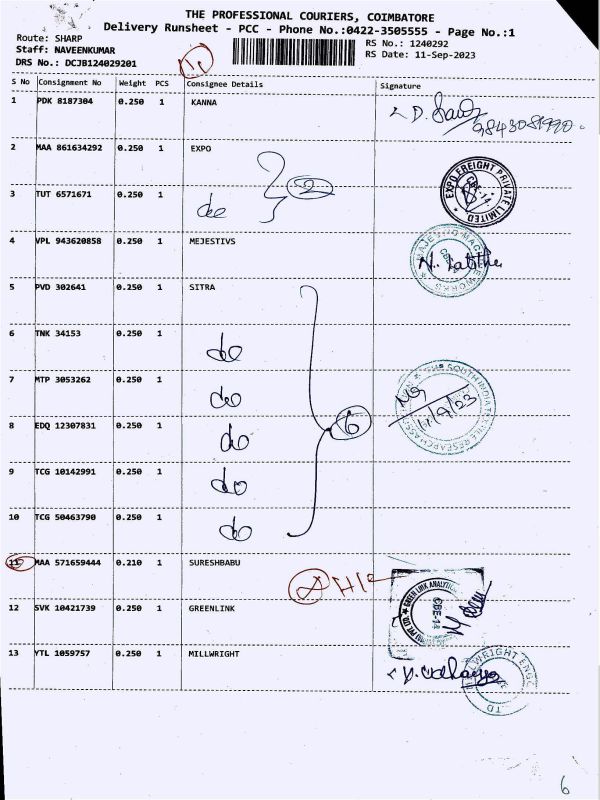 THE PROFESSIONAL COURIERS, COIMBATORE
Delivery Runsheet - PCC - Phone No.:0422-3505555 - Page No.:1
Route: SHARP
Staff: NAVEENKUMAR
DRS No.: DCJB124029201
RS No.: 1240292
RS Date: 11-Sep-2023
S No Consignment No Weight PCS Consignee Details Signature
1 PDK 8187304 0.250 1 KANNA
9843081990
2 MAA 861634292 0.250 1 EXPO
EXPO FREIGHT PRIVATE LIMITED
CBE-14
3 TUT 6571671 0.250 1 do
2
4 VPL 943620858 0.250 1 MEJESTIVS
5 PVD 302641 0.250 1 SITRA
6 TNK 34153 0.250 1 do
7 MTP 3053262 0.250 1 do
11/9/23
8 EDQ 12307831 0.250 1 do
6
9 TCG 10142991 0.250 1 do
10 TCG 50463790 0.250 1 do
11 MAA 571659444 0.210 1 SURESHBABU
12 SVK 10421739 0.250 1 GREENLINK
CBE-14
13 YTL 1059757 0.250 1 MILLWRIGHT
6